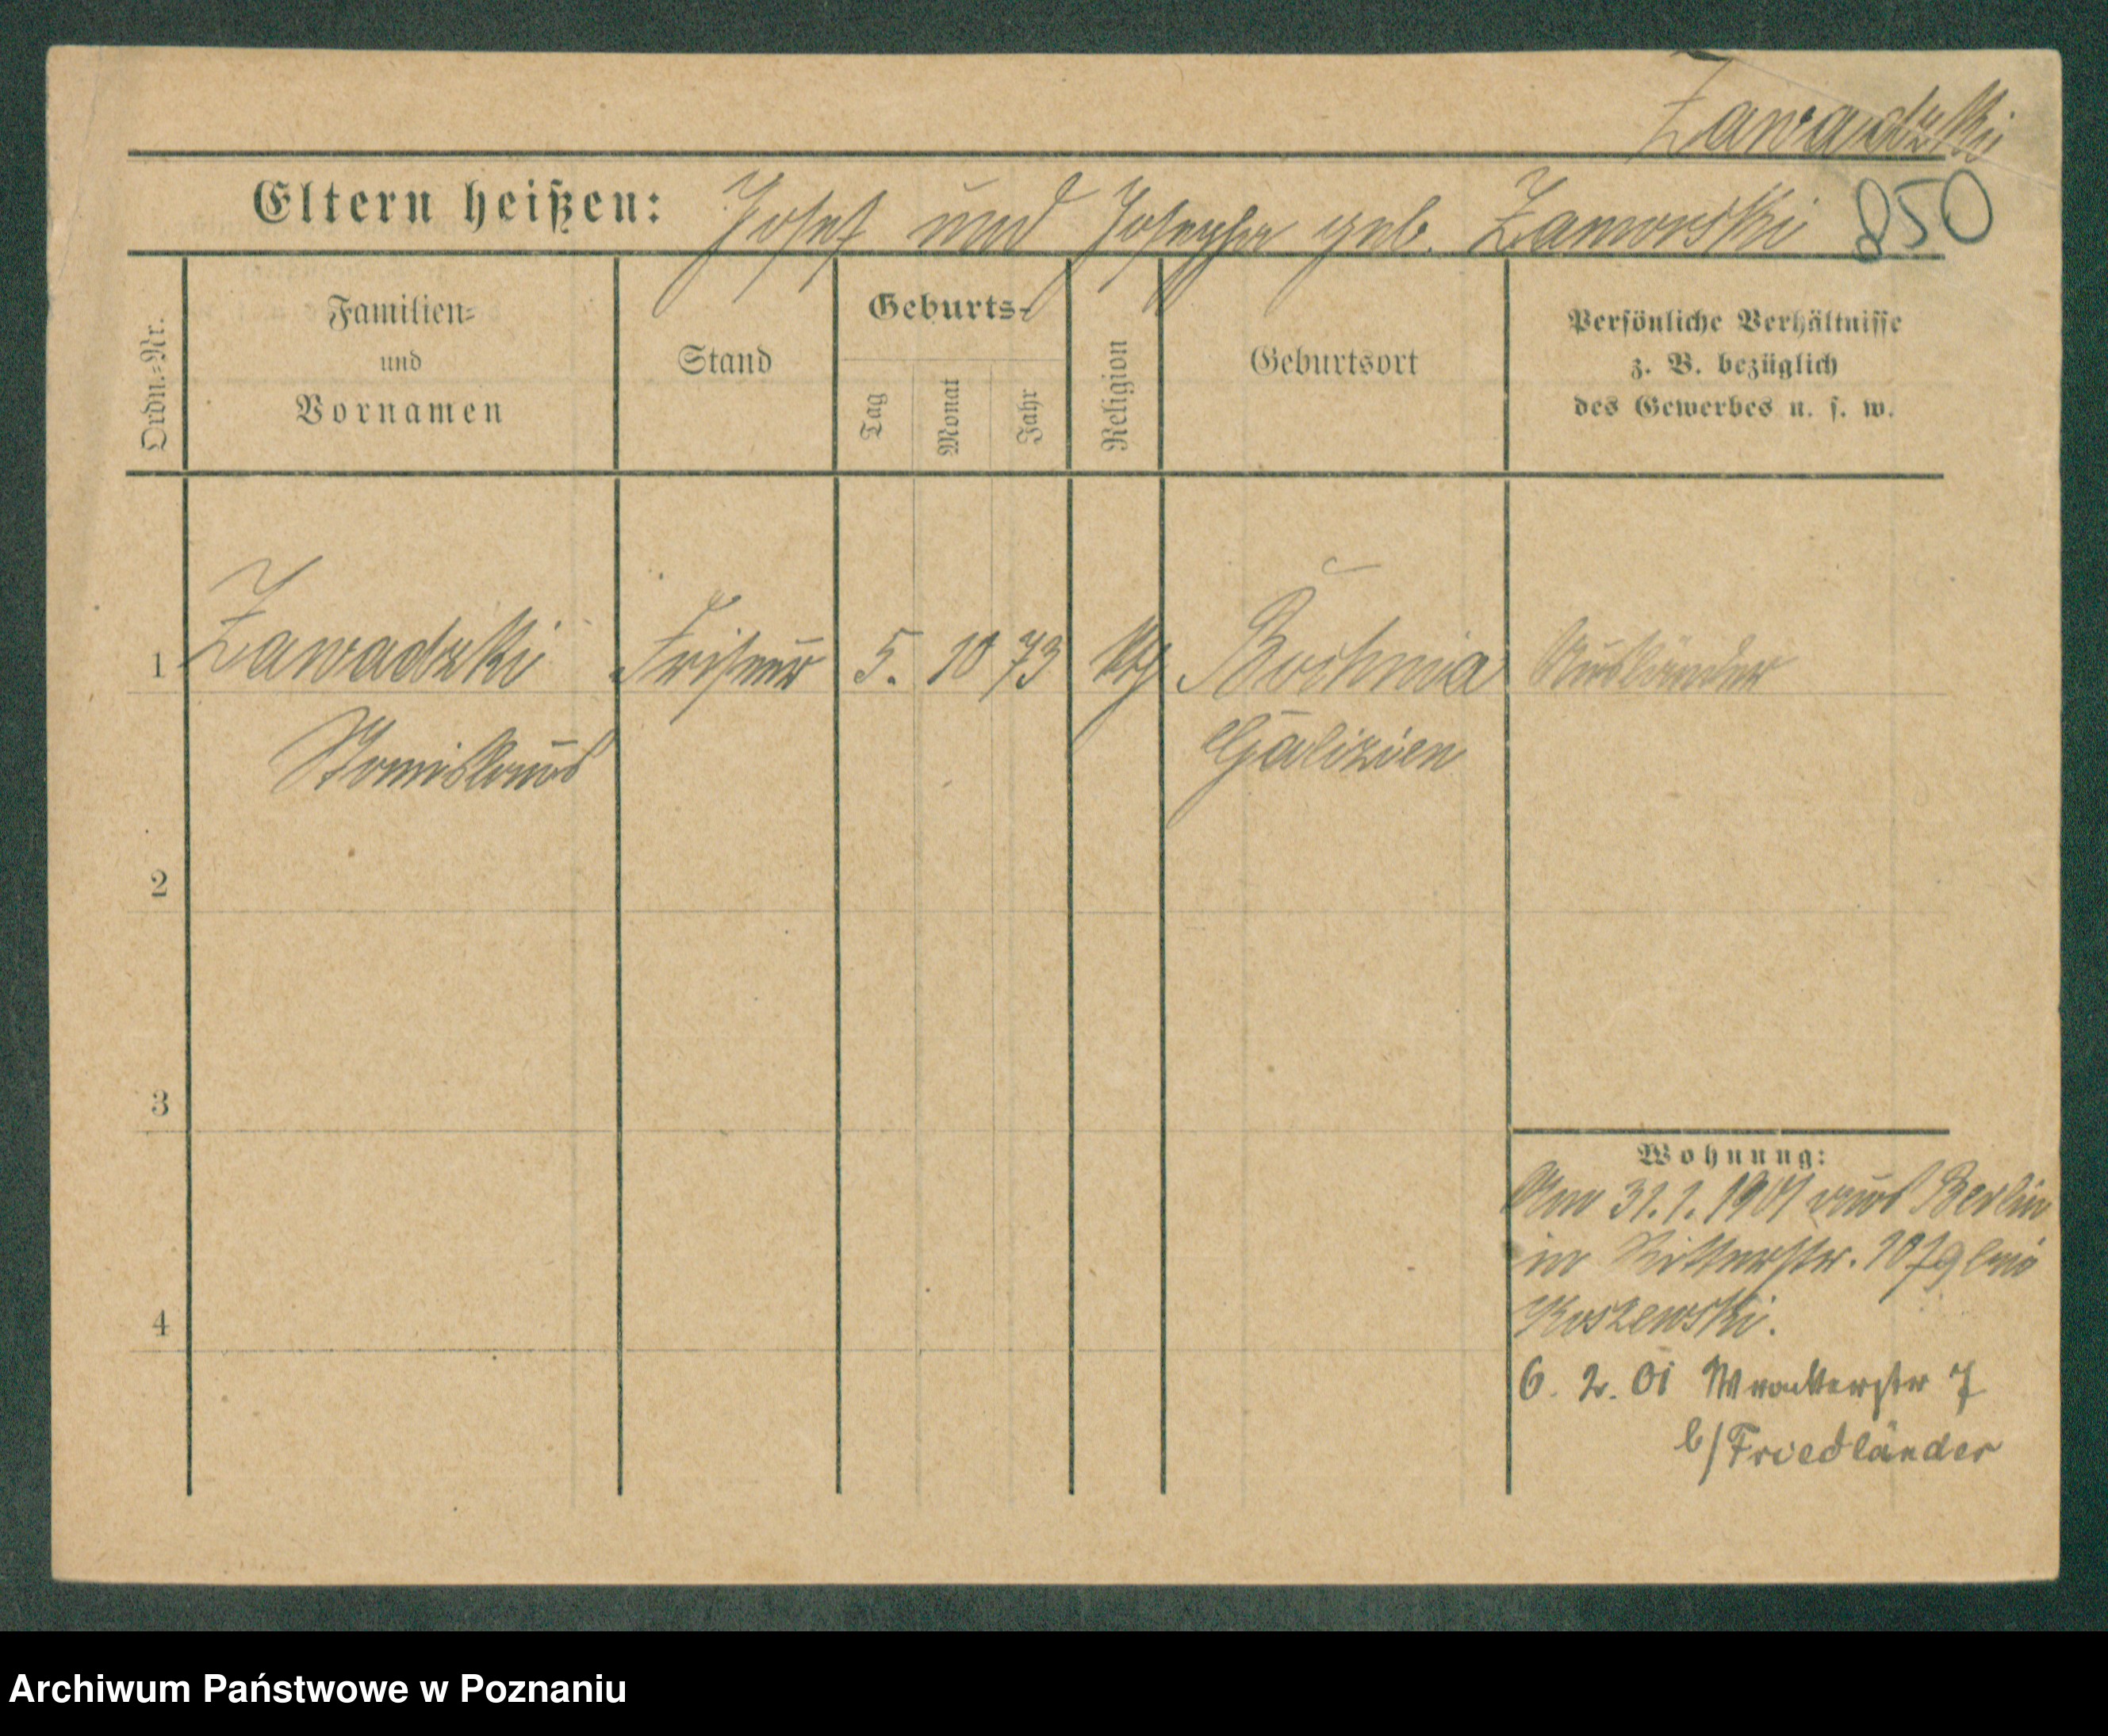 Zawadzki
Eltern heißen: Josef und Josepha geb. Zamorski 850
Ordn.-Nr.
Familien-
und
Vornamen
Stand
Geburts-
Tag
Monat
Jahr
Religion
Geburtsort
Persönliche Verhältnisse
z. B. bezüglich
des Gewerbes u. s. w.
1 Zawadzki Friseur 5. 10 73 ktg Bochnia Ausländer
Stanislaus Galizien
2
3
4
Wohnung:
Am 31.1.1901 aus Berlin
in Ritterstr. bei
Koszewski.
6. 2. 01 7
b/Friedländer
Archiwum Państwowe w Poznaniu